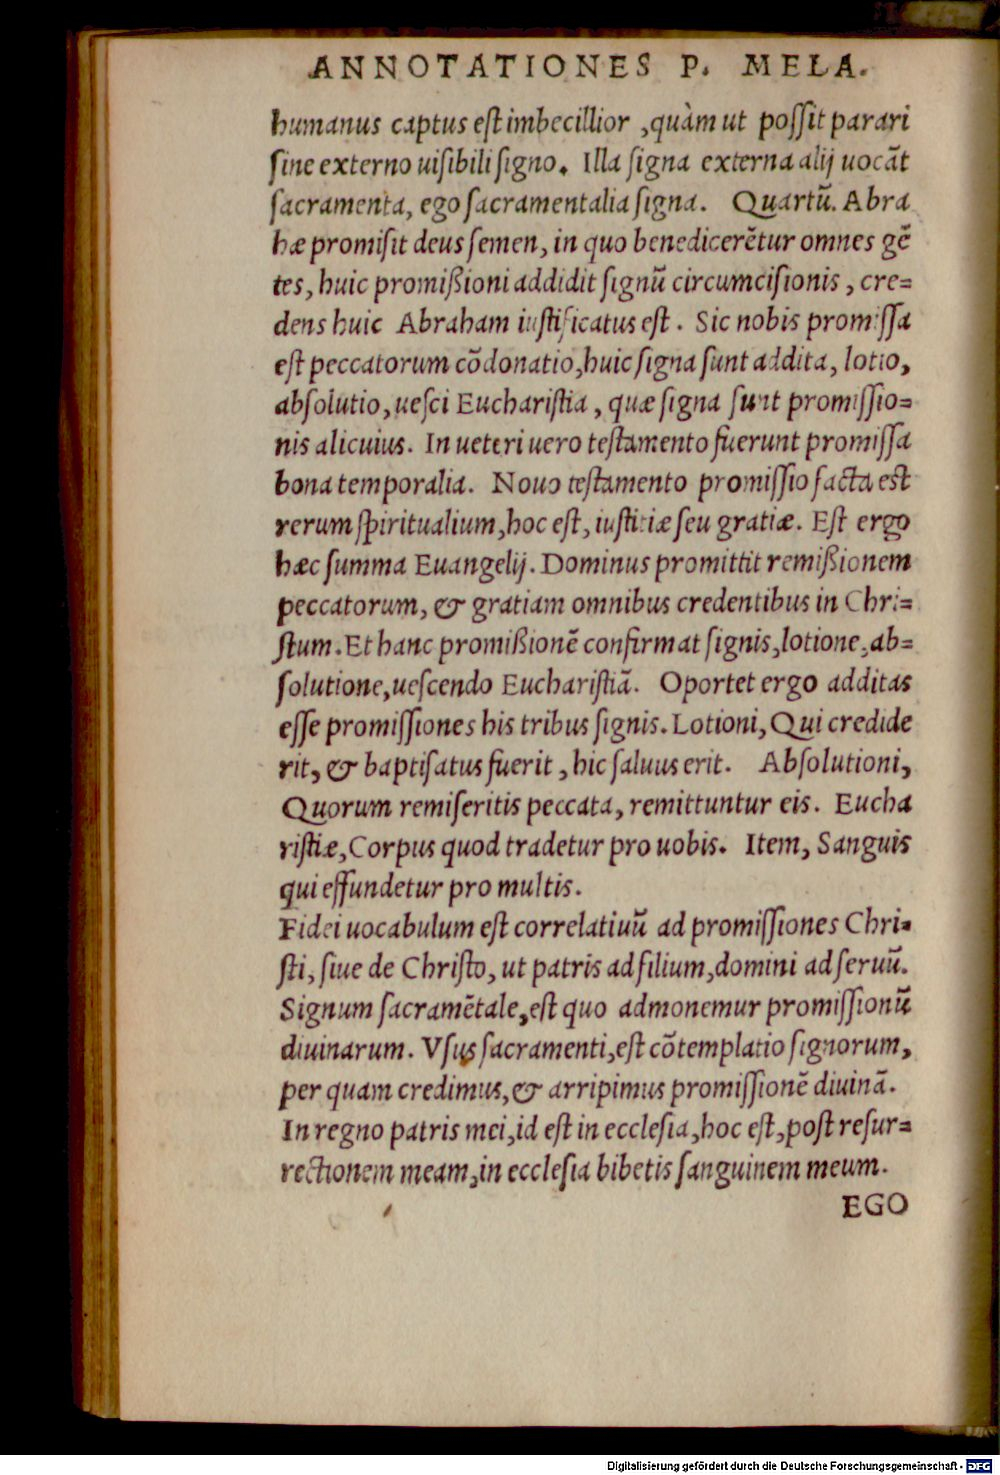 ANNOTATIONES P. MELA.
humanus captus eſt imbecillior , quàm ut poſſit parari
ſine externo uiſibili ſigno. Illa ſigna externa alij uocāt
ſacramenta, ego ſacramentalia ſigna. Quartū. Abra
hæ promiſit deus ſemen, in quo benedicerētur omnes gē
tes, huic promißioni addidit ſignū circumciſionis , cre=
dens huic Abraham iuſtificatus eſt . Sic nobis promiſſa
eſt peccatorum cōdonatio, huic ſigna ſunt addita, lotio,
abſolutio, ueſci Euchariſtia , quæ ſigna ſunt promiſſio=
nis alicuius. In ueteri uero teſtamento fuerunt promiſſa
bona temporalia. Nouo teſtamento promiſſio facta eſt
rerum ſpiritualium, hoc eſt, iuſtitiæ ſeu gratiæ. Eſt ergo
hæc ſumma Euangelij. Dominus promittit remißionem
peccatorum, & gratiam omnibus credentibus in Chri=
ſtum. Et hanc promißionē confirmat ſignis, lotione, ab=
ſolutione, ueſcendo Euchariſtiā. Oportet ergo additas
eſſe promiſſiones his tribus ſignis. Lotioni, Qui credide
rit, & baptiſatus fuerit , hic ſaluus erit. Abſolutioni,
Quorum remiſeritis peccata, remittuntur eis. Eucha
riſtiæ, Corpus quod tradetur pro uobis. Item, Sanguis
qui effundetur pro multis.
Fidei uocabulum eſt correlatiuū ad promiſſiones Chri=
ſti, ſiue de Chriſto, ut patris ad filium, domini ad ſeruū.
Signum ſacramētale, eſt quo admonemur promiſſionū
diuinarum. Vſus ſacramenti, eſt cōtemplatio ſignorum,
per quam credimus, & arripimus promiſſionē diuinā.
In regno patris mei, id eſt in eccleſia, hoc eſt, poſt reſur=
rectionem meam, in eccleſia bibetis ſanguinem meum.
EGO
Digitalisierung gefördert durch die Deutsche Forschungsgemeinschaft - DFG